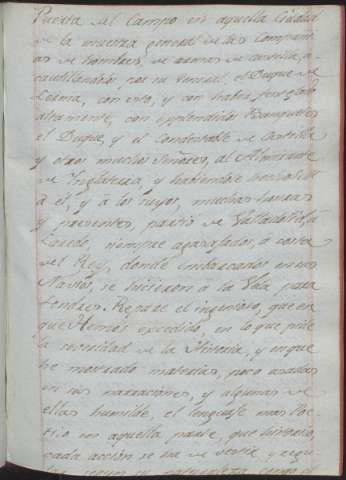 Puerta del Campo en aquella Ciudad
de la muestra general de las Compañi
as de hombres, de armas de Castilla, a
caudillandolos por su General, el Duque de
Lerma, con esto, y con haver festejado
altamente, con esplendidos Banquetes
el Duque, y el Condestable de Castilla
y otros muchos Señores, al Almirante
de Ynglaterra, y habiendose hecholes
à el, y à los suyos, muchas honras
y presentes, partió de Valladolid, à
Laredo, siempre agasajados, à costa
del Rey, donde embarcados en sus
Navios, se hicieron à la Vela para
Londres. Repare el ingenioso, que en
que Hemos excedido, en lo que pide
la severidad de la Historia, y en que
he mezclado materias, poco usadas
en sus narraciones, y algunas de
ellas humilde, el lenguaje mas
en aquella parte, que
cada accion se ha de vestir y